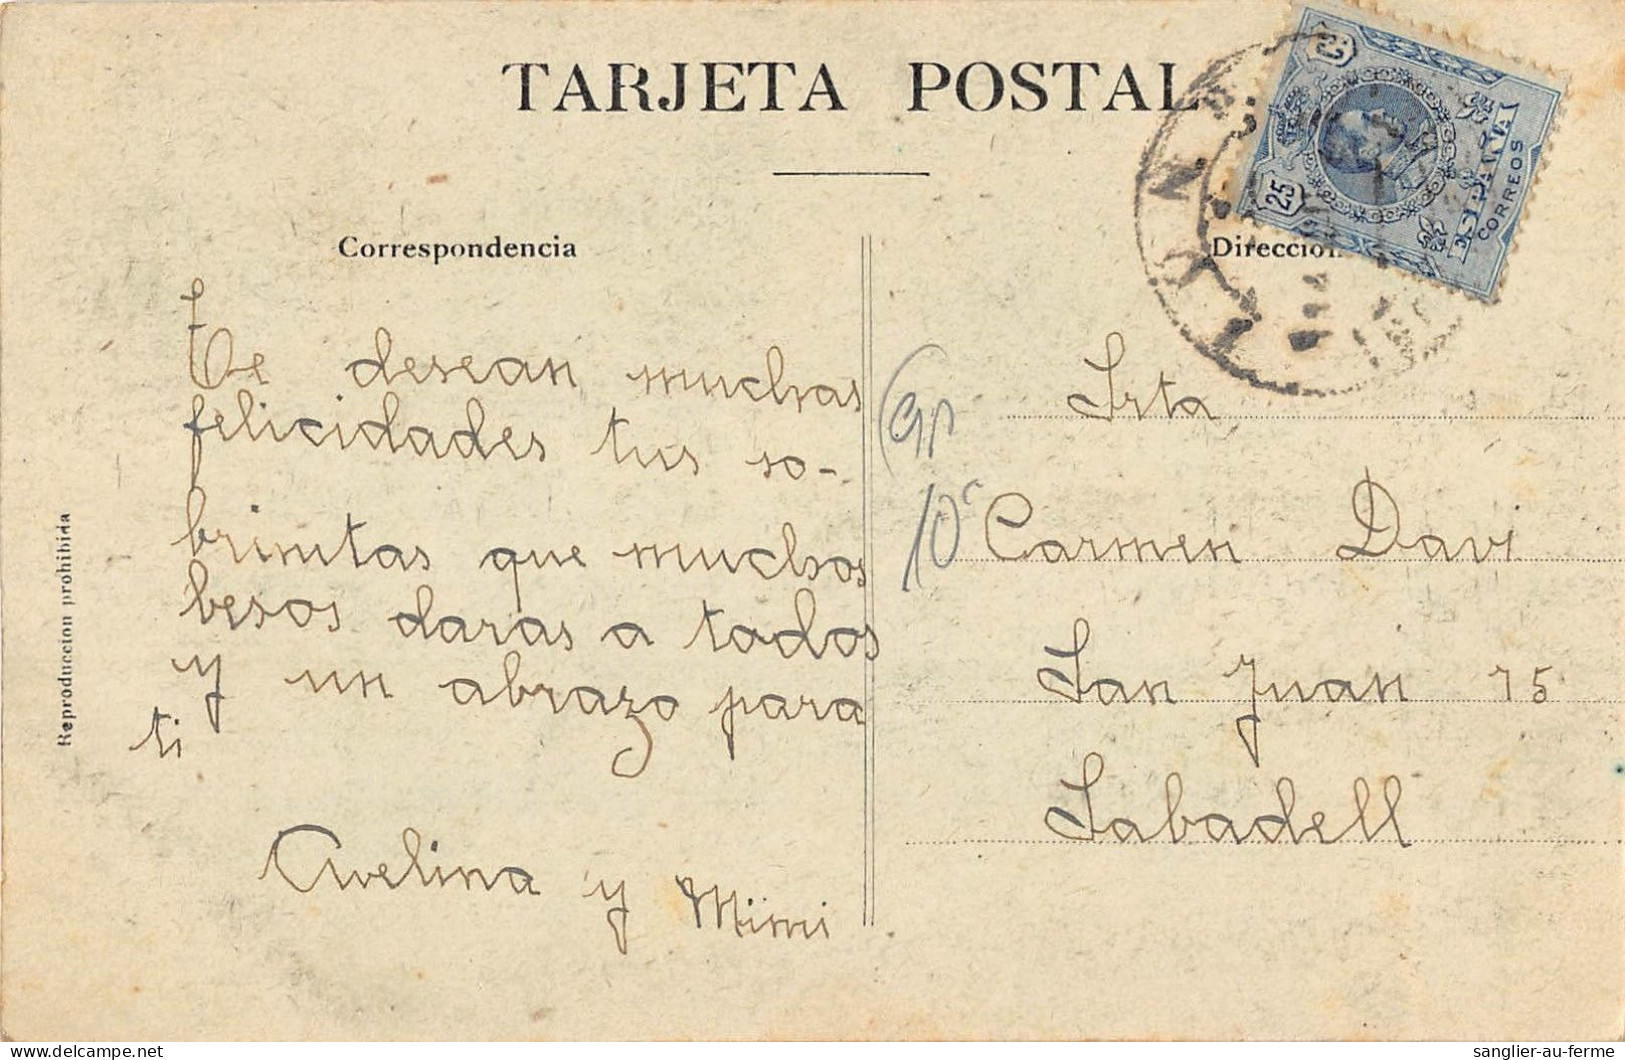 TARJETA POSTAL
Correspondencia
Te desean muchas
felicidades tus so-
brinitas que muchos
besos daras a todos
y un abrazo para
ti
Avelina y Mimi
Reproduccion prohibida
Direccion
25
25
ESPAÑA
CORREOS
10c
Srta
Carmen Davi
San Juan 75
Sabadell
sanglier-au-ferme